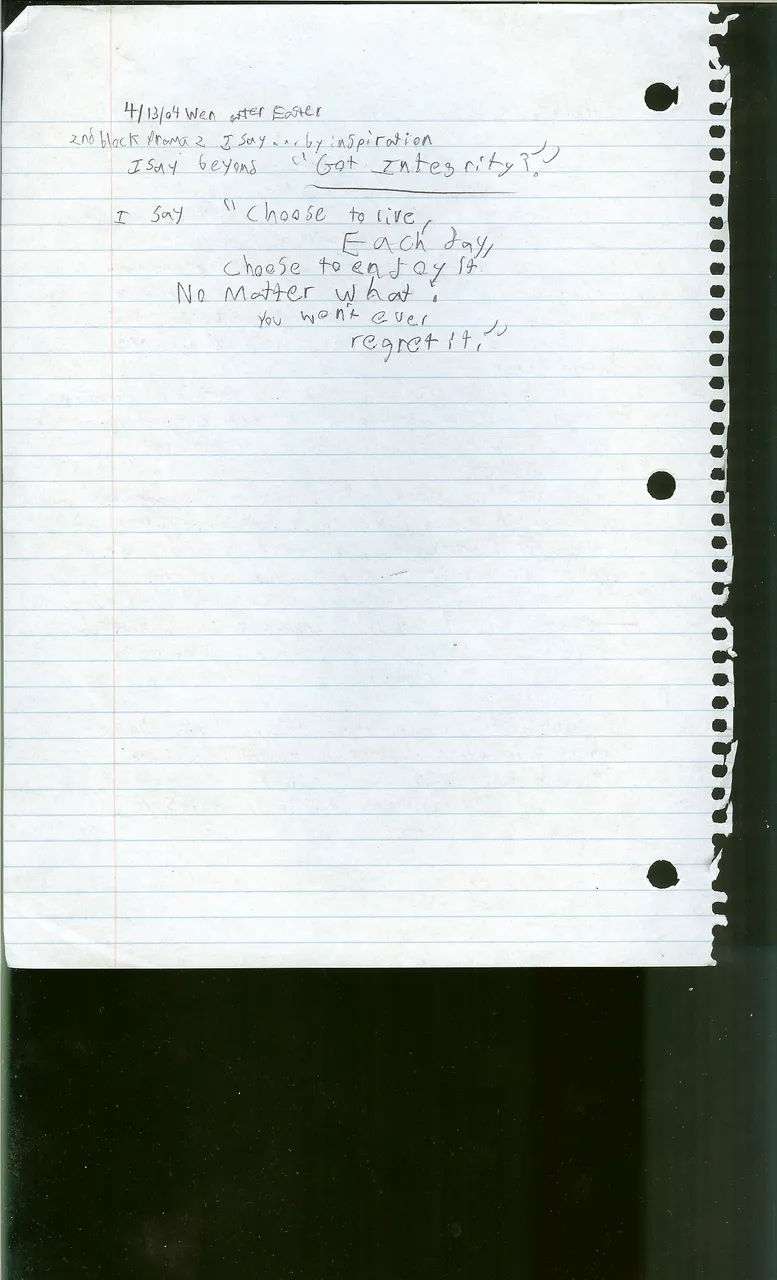 4/13/04 Wen after Easter
2nd block Drama 2 I say... by inspiration
I say beyond "Got Integrity?"
I say "Choose to live,
Each day,
Choose to enjoy it
No Matter what.
You won't ever
regret it."